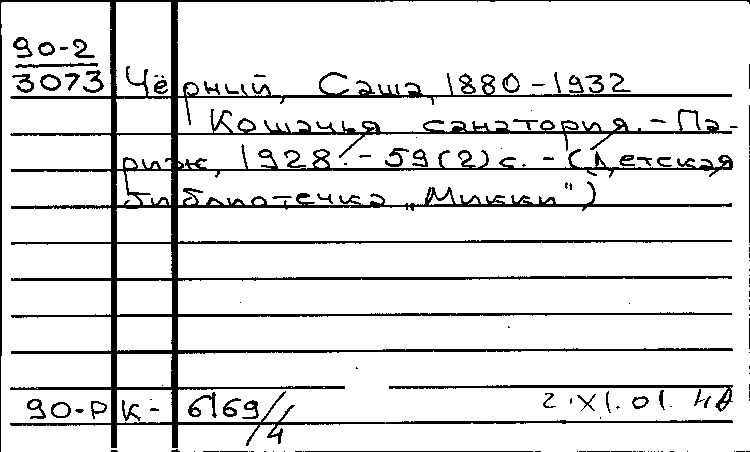 90-2
3073 Чёрный, Саша, 1880-1932
Кошачья санатория. - Па-
риж, 1928. - 59(2)с. - (Детская
библиотечка „Микки")
90-Р К- 6169/4 2.XI.01.